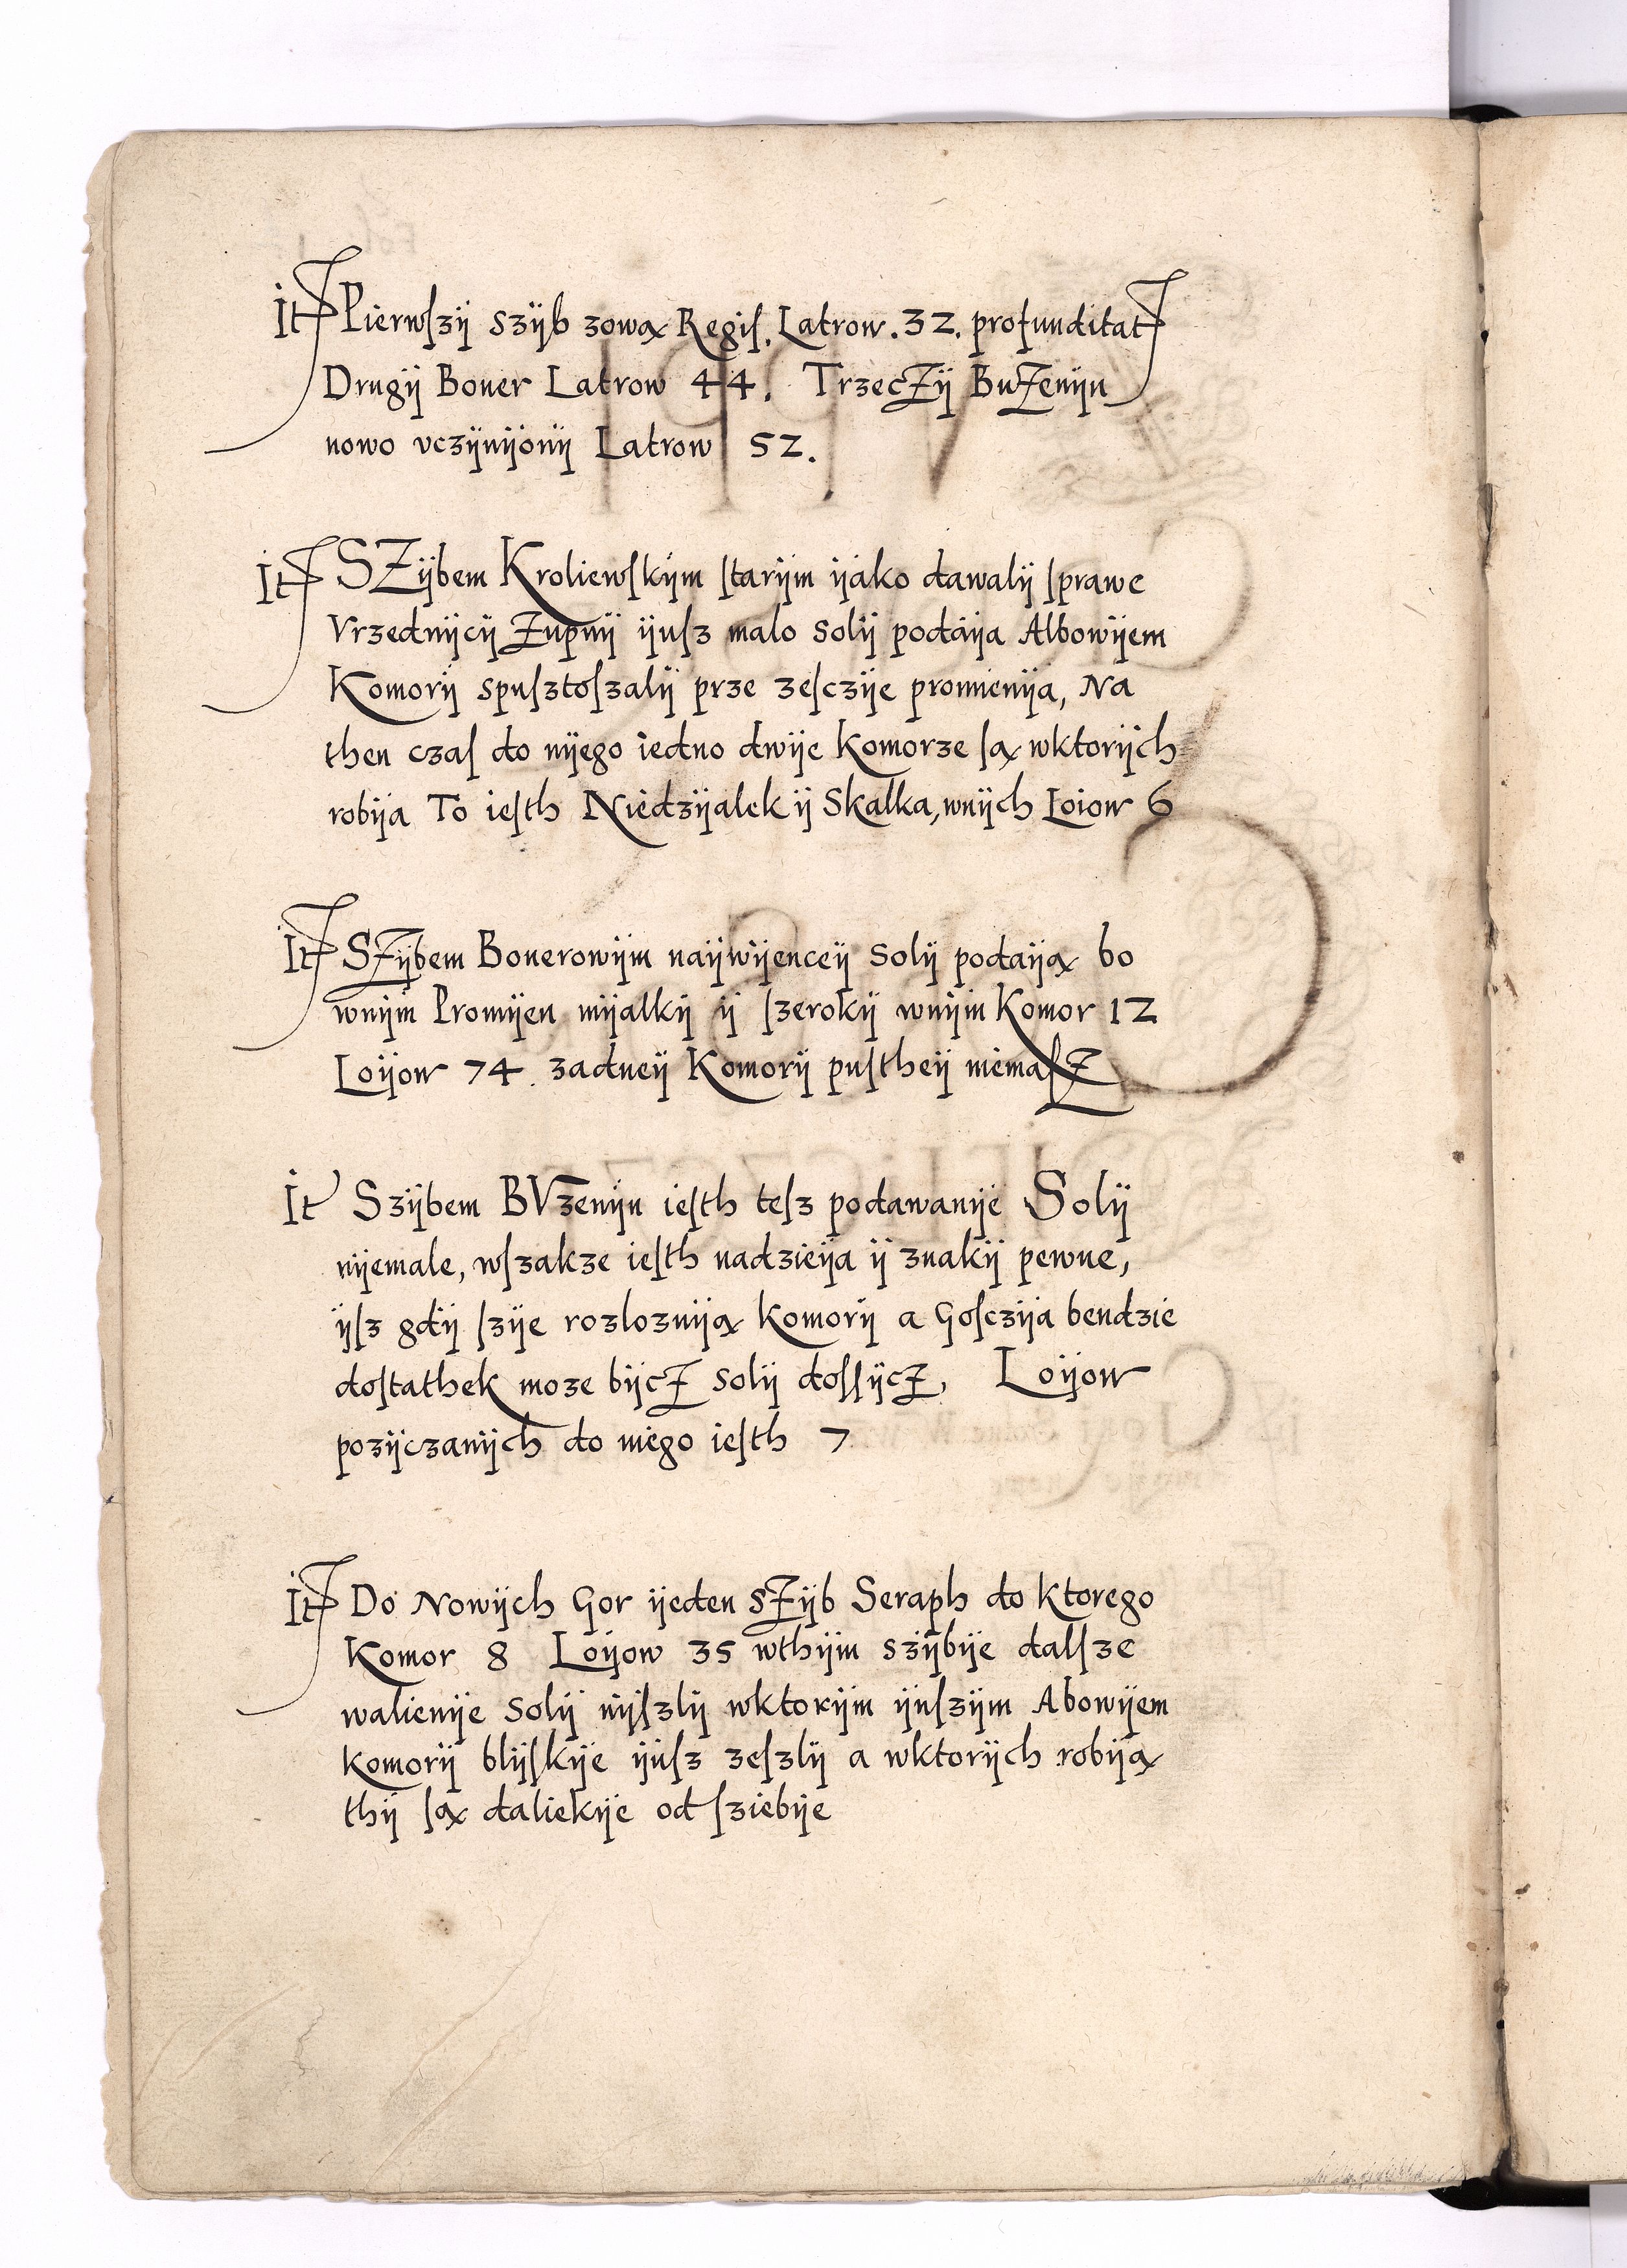 It Pierwſzÿ szÿb zową Regiſ. Latrow. 32. profunditat
Drugÿ Boner Latrow 44. Trzeczÿ Buzenÿn
nowo vczÿnÿonÿ Latrow 52.
It SZÿbem Kroliewſkÿm ſtarÿm ÿako dawalÿ ſprawe
Vrzednÿcÿ Zupnÿ ÿuſz malo Solÿ podaÿa Albowÿem
Komorÿ spuſztoſzalÿ prze zeſczÿe promienÿa, Na
then czaſ do nÿego iedno dwÿe Komorze ſą wktorÿch
robÿa To ieſth Niedzÿalek ÿ Skalka, wnÿch Loiow 6
It SZÿbem Bonerowÿm naÿwÿenceÿ Solÿ podaÿą bo
wnÿm Promÿen mÿalkÿ ÿ ſzerokÿ wnÿm Komor 12
Loÿow 74. zadneÿ Komorÿ puſtheÿ niemaſz
It Szÿbem BVzenÿn ieſth teſz podawanÿe Solÿ
nÿemale, wſzakze ieſth nadzieÿa ÿ znakÿ pewne,
ÿſz gdÿ ſzÿe rozloznÿą Komorÿ a Goſczÿa bendzie
doſtathek moze bÿcz Solÿ doſſÿcz, Loÿow
pozÿczanÿch do niego ieſth 7
It Do Nowÿch Gor ÿeden szÿb Seraph do Ktorego
Komor 8 Loÿow 35 wthÿm szÿbÿe dalſze
walienÿe Solÿ nÿſzlÿ wktorÿm ÿnſzÿm Abowÿem
Komorÿ blÿſkÿe ÿuſz zeſzlÿ a wktorÿch robÿą
thÿ ſą daliekÿe od ſziebÿe